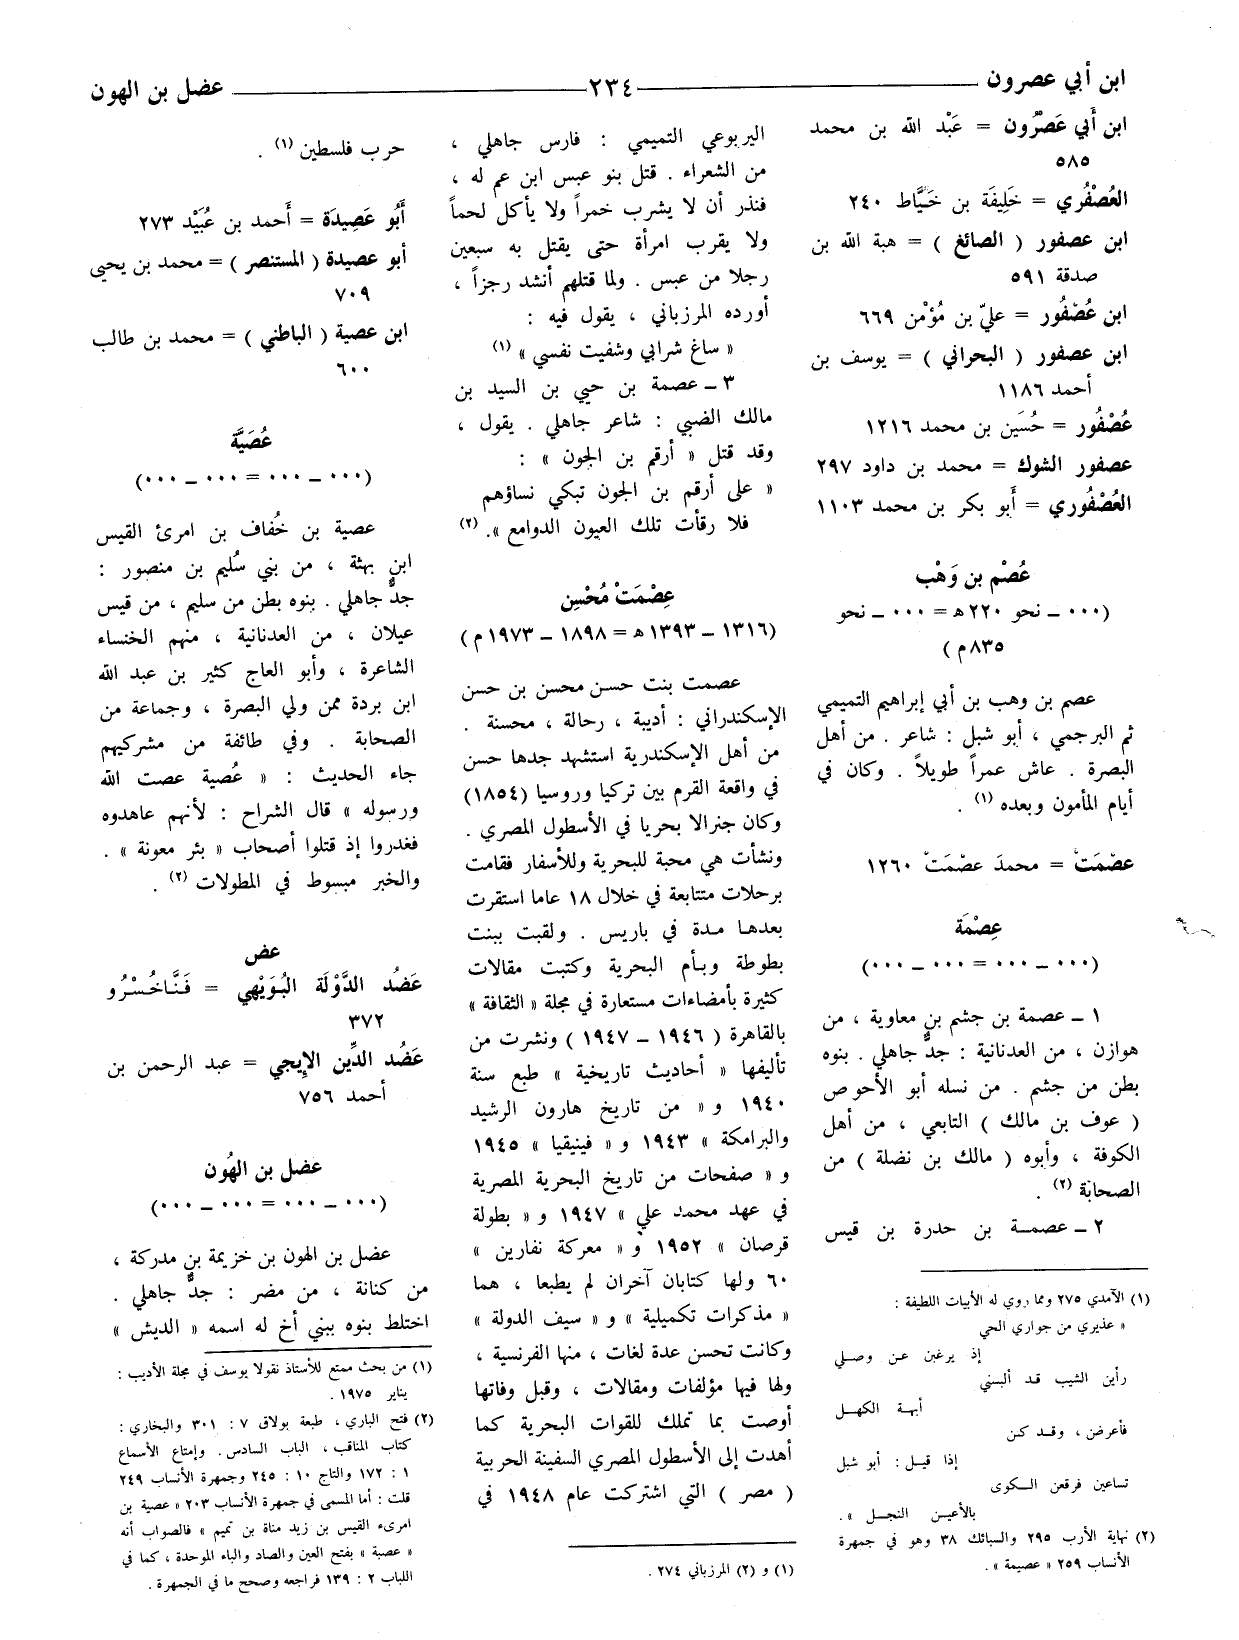 ابن أبي عصرون
٢٣٤
عضل بن الهون
ابن أَبي عَصْرُون = عَبْد الله بن محمد
٥٨٥
العُصْفُري = خَلِيفَة بن خَيَّاط ٢٤٠
ابن عصفور ( الصائغ ) = هبة الله بن
صدقة ٥٩١
ابن عُصْفُور = عليّ بن مُؤْمن ٦٦٩
ابن عصفور ( البحراني ) = يوسف بن
أحمد ١١٨٦
عُصْفُور = حُسَين بن محمد ١٢١٦
عصفور الشوك = محمد بن داود ٢٩٧
العُصْفُوري = أَبو بكر بن محمد ١١٠٣
عُصْم بن وَهْب
(٠٠٠ ــ نحو ٢٢٠ ه = ٠٠٠ ــ نحو
٨٣٥ م )
عصم بن وهب بن أبي إبراهيم التميمي
ثم البرجمي ، أبو شبل : شاعر . من أهل
البصرة . عاش عمراً طويلاً . وكان في
أيام المأمون وبعده (١) .
عصْمَتْ = محمدَ عصْمَتْ ١٢٦٠
عِصْمَة
(٠٠٠ ــ ٠٠٠ = ٠٠٠ ــ ٠٠٠)
١ ــ عصمة بن جشم بن معاوية ، من
هوازن ، من العدنانية : جدٌّ جاهلي . بنوه
بطن من جشم . من نسله أبو الأحوص
( عوف بن مالك ) التابعي ، من أهل
الكوفة ، وأبوه ( مالك بن نضلة ) من
الصحابة (٢) .
٢ ــ عصمـة بن حدرة بن قيس
(١) الآمدي ٢٧٥ ومما روي له الأبيات اللطيفة :
« عذيري من جواري الحي
إذ يرغبن عن وصلي
رأين الشيب قد ألبسني
أبهة الكهل
فأعرضن ، وقد كن
إذا قيل : أبو شبل
تساعين فرقعن الكوى
بالأعين النجل » .
(٢) نهاية الأرب ٢٩٥ والسبائك ٣٨ وهو في جمهرة
الأنساب ٢٥٩ « عصيمة » .
اليربوعي التميمي : فارس جاهلي ،
من الشعراء . قتل بنو عبس ابن عم له ،
فنذر أن لا يشرب خمراً ولا يأكل لحماً
ولا يقرب امرأة حتى يقتل به سبعين
رجلا من عبس . ولما قتلهم أنشد رجزاً ،
أورده المرزباني ، يقول فيه :
« ساغ شرابي وشفيت نفسي » (١)
٣ ــ عصمة بن حيي بن السيد بن
مالك الضبي : شاعر جاهلي . يقول ،
وقد قتل « أرقم بن الجون » :
« على أرقم بن الجون تبكي نساؤهم
فلا رقأت تلك العيون الدوامع ». (٢)
عِصْمَتْ مُحْسِن
(١٣١٦ ــ ١٣٩٣ ه = ١٨٩٨ ــ ١٩٧٣ م )
عصمت بنت حسن محسن بن حسن
الإسكندراني : أديبة ، رحالة ، محسنة .
من أهل الإسكندرية استشهد جدها حسن
في واقعة القرم بين تركيا وروسيا (١٨٥٤)
وكان جنرالا بحريا في الأسطول المصري .
ونشأت هي محبة للبحرية وللأسفار فقامت
برحلات متتابعة في خلال ١٨ عاما استقرت
بعدها مدة في باريس . ولقبت ببنت
بطوطة وبأم البحرية وكتبت مقالات
كثيرة بأمضاءات مستعارة في مجلة « الثقافة »
بالقاهرة ( ١٩٤٦ ــ ١٩٤٧ ) ونشرت من
تأليفها « أحاديث تاريخية » طبع سنة
١٩٤٠ و « من تاريخ هارون الرشيد
والبرامكة » ١٩٤٣ و « فينيقيا » ١٩٤٥
و « صفحات من تاريخ البحرية المصرية
في عهد محمد علي » ١٩٤٧ و « بطولة
قرصان » ١٩٥٢ و « معركة نفارين »
٦٠ ولها كتابان آخران لم يطبعا ، هما
« مذكرات تكميلية » و « سيف الدولة »
وكانت تحسن عدة لغات ، منها الفرنسية ،
ولها فيها مؤلفات ومقالات ، وقبل وفاتها
أوصت بما تملك للقوات البحرية كما
أهدت إلى الأسطول المصري السفينة الحربية
( مصر ) التي اشتركت عام ١٩٤٨ في
(١) و (٢) المرزباني ٢٧٤ .
حرب فلسطين (١) .
أَبُو عَصِيدَة = أَحمد بن عُبَيْد ٢٧٣
أبو عصيدة ( المستنصر ) = محمد بن يحيى
٧٠٩
ابن عصية ( الباطني ) = محمد بن طالب
٦٠٠
عُصَيَّة
(٠٠٠ ــ ٠٠٠ = ٠٠٠ ــ ٠٠٠)
عصية بن خُفاف بن امرئ القيس
ابن بهثة ، من بني سُليم بن منصور :
جدٌّ جاهلي . بنوه بطن من سليم ، من قيس
عيلان ، من العدنانية ، منهم الخنساء
الشاعرة ، وأبو العاج كثير بن عبد الله
ابن بردة ممن ولي البصرة ، وجماعة من
الصحابة . وفي طائفة من مشركيهم
جاء الحديث : « عُصية عصت الله
ورسوله » قال الشراح : لأنهم عاهدوه
فغدروا إذ قتلوا أصحاب « بئر معونة » .
والخبر مبسوط في المطولات (٢) .
عض
عَضُد الدَّوْلَة البُوَيْهي = فَنَّاخُسْرُو
٣٧٢
عَضُد الدِّين الإِيجي = عبد الرحمن بن
أحمد ٧٥٦
عضل بن الهُون
(٠٠٠ ــ ٠٠٠ = ٠٠٠ ــ ٠٠٠)
عضل بن الهون بن خزيمة بن مدركة ،
من كنانة ، من مضر : جدٌّ جاهلي .
اختلط بنوه ببني أخ له اسمه « الديش »
(١) من بحث ممتع للأستاذ نقولا يوسف في مجلة الأديب :
يناير ١٩٧٥ .
(٢) فتح الباري ، طبعة بولاق ٧ : ٣٠١ والبخاري :
كتاب المناقب ، الباب السادس . وإمتاع الأسماع
١ : ١٧٢ والتاج ١٠ : ٢٤٥ وجمهرة الأنساب ٢٤٩
قلت : أما المسمى في جمهرة الأنساب ٢٠٣ « عصية بن
امرىء القيس بن زيد مناة بن تميم » فالصواب أنه
« عصبة » بفتح العين والصاد والباء الموحدة ، كما في
اللباب ٢ : ١٣٩ فراجعه وصحح ما في الجمهرة .